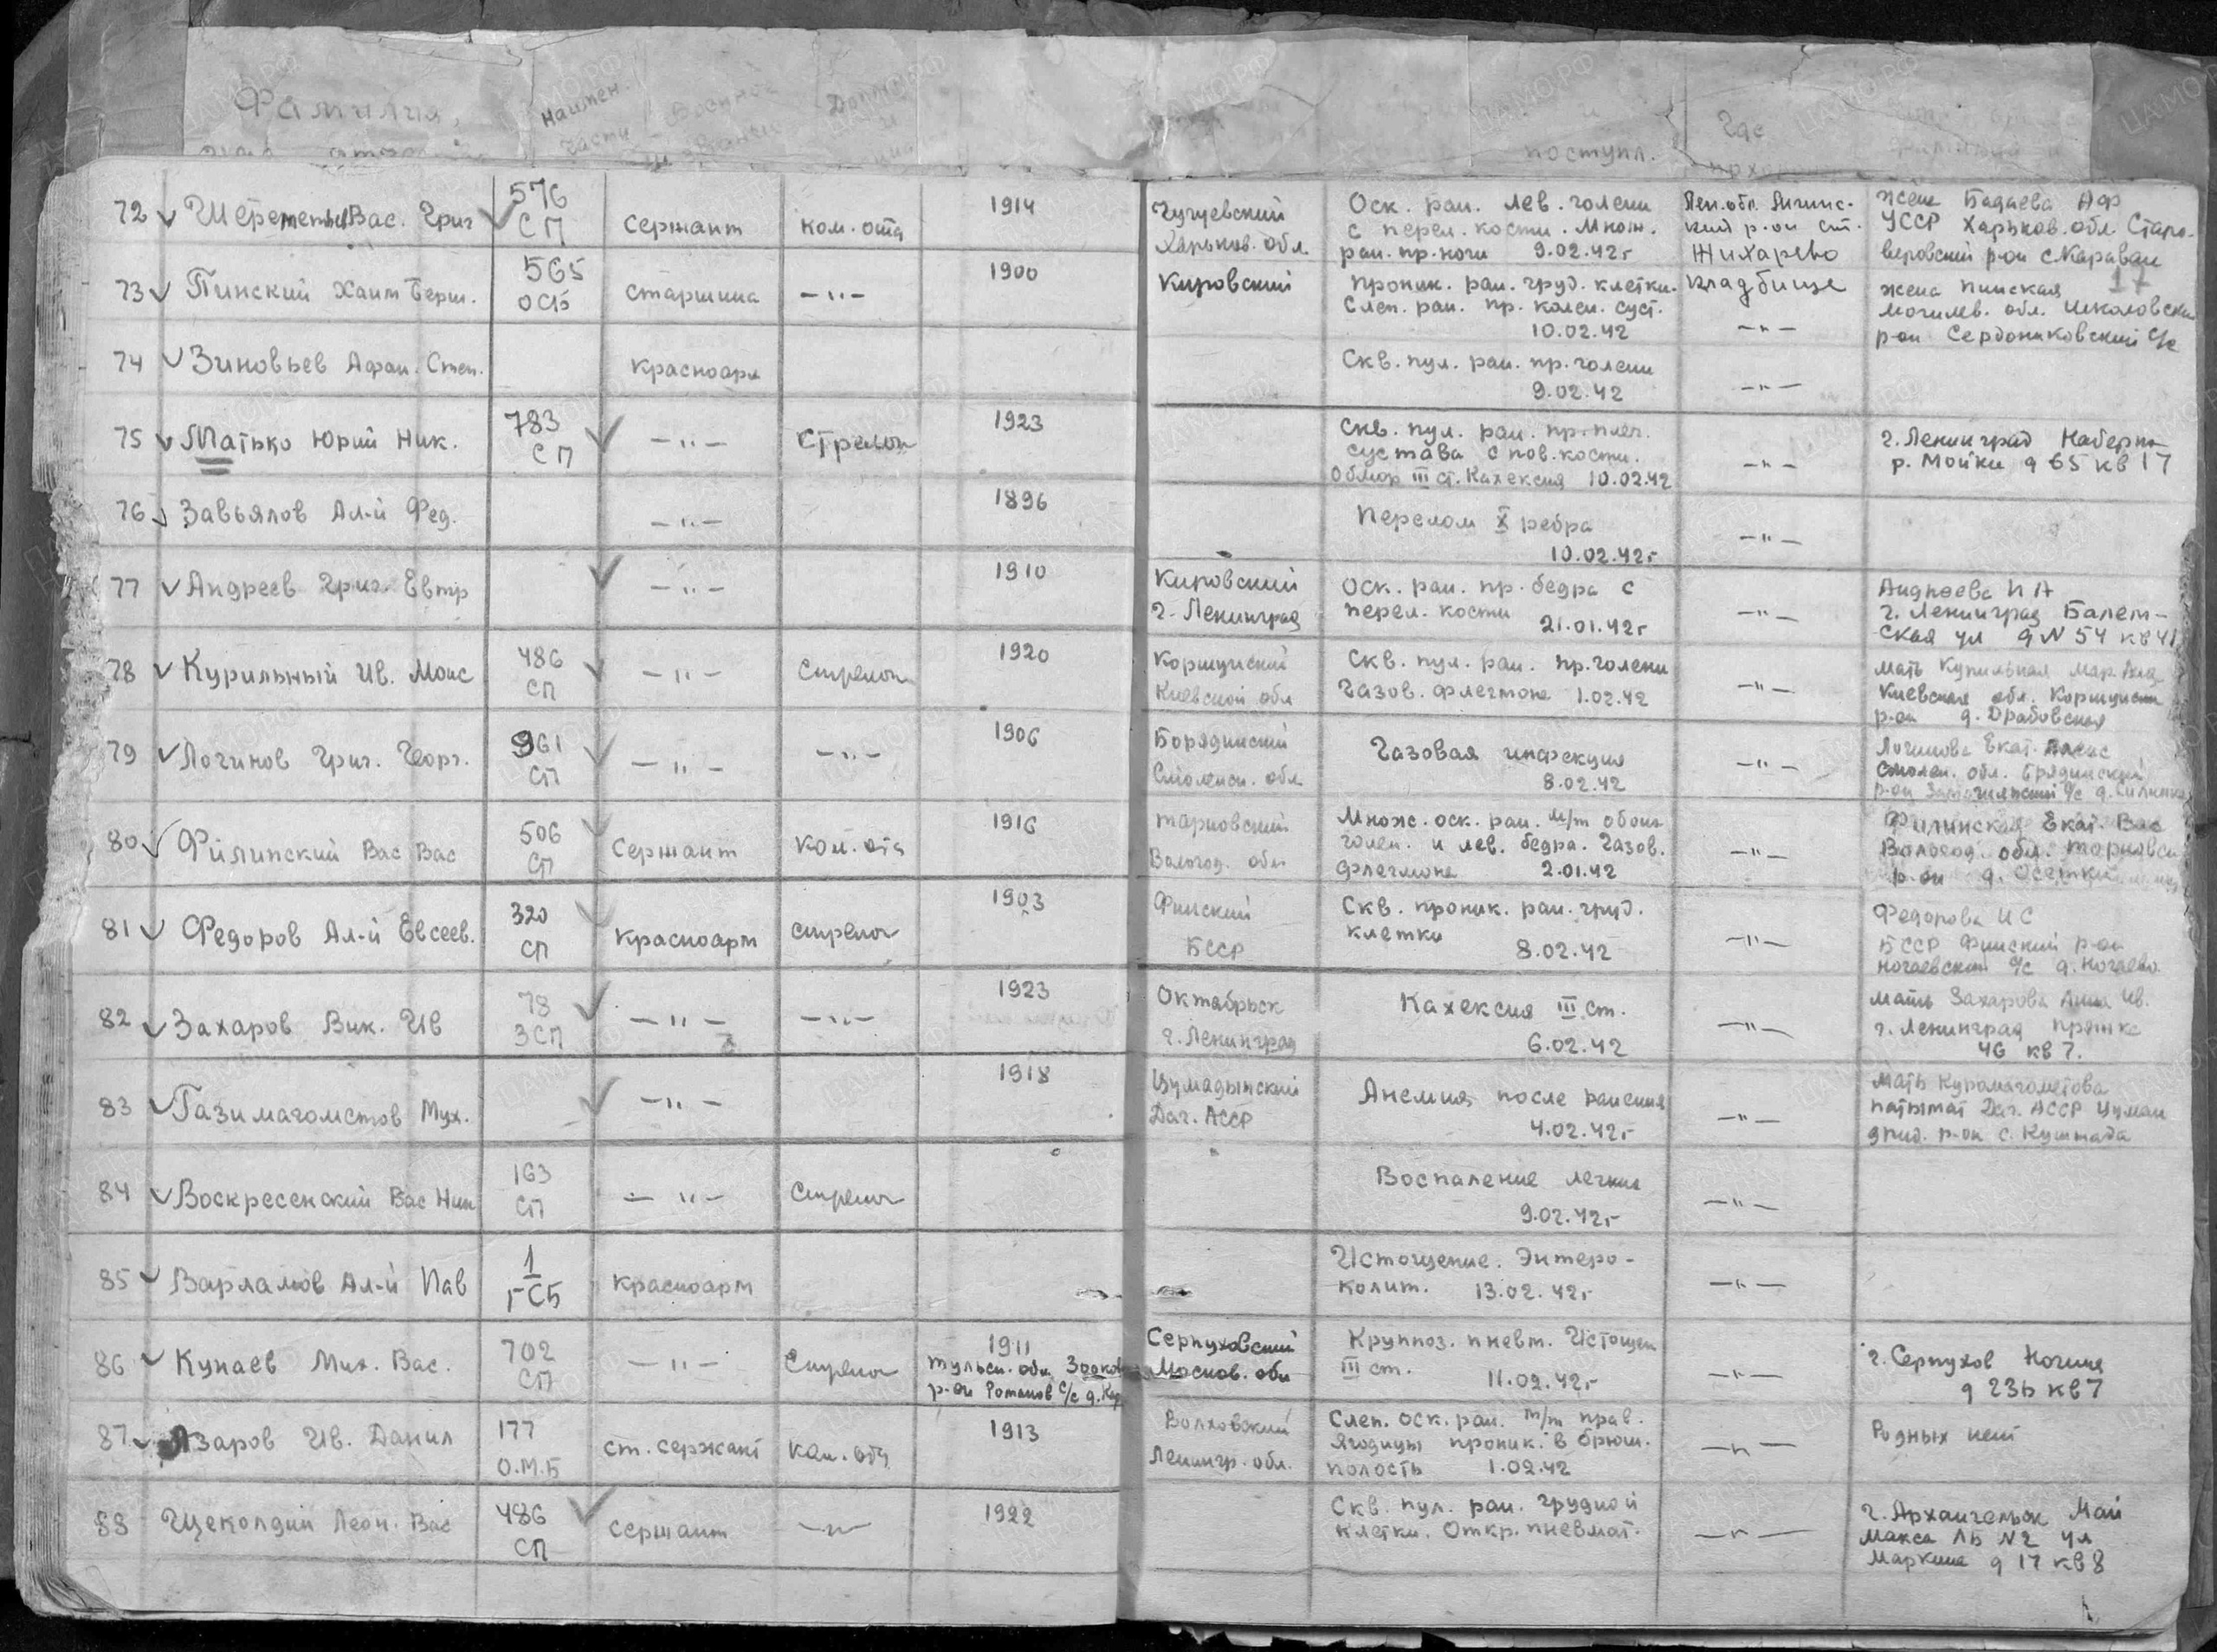 Фамилия,
Наимен. части
Военное
Должн.
поступл.
Где
72 Шереметьев Вас. Григ 576 СП Сержант ком. отд 1914 Чугуевский Харьков. обл. Оск. ран. лев. голени с перел. кости. Множ. ран. пр. ноги 9.02.42г Лен. обл. Мгинский р-он ст. Жихарево кладбище жена Бадаева Аф УССР Харьков. обл. Староверовский р-он с Караван
73 Пинский Хаим Берш. 565 ОСБ Старшина —"— 1900 Кировский Проник. ран. груд. клетки. Слеп. ран. пр. колен. суст. 10.02.42 —"— жена Пинская 17 Могилев. обл. Шкловский р-он Сердониковский с/с
74 Зиновьев Афан. Степ. Красноарм Скв. пул. ран. пр. голени 9.02.42 —"—
75 Матько Юрий Ник. 783 СП —"— Стрелок 1923 Скв. пул. ран. пр. плеч. сустава с пов. кости. Обмор III ст. Кахексия 10.02.42 —"— г. Ленинград Набережн р. Мойки д 65 кв 17
76 Завьялов Ал-й Фед. —"— 1896 Перелом X ребра 10.02.42г —"—
77 Андреев Григ. Евтр —"— 1910 Кировский г. Ленинград Оск. ран. пр. бедра с перел. кости 21.01.42г —"— Андреева П А г. Ленинград Балтийская ул д N 54 кв 41
78 Курильный Ив. Моис 486 СП —"— Стрелок 1920 Корсунский Киевской обл Скв. пул. ран. пр. голени Газов. флегмона 1.02.42 —"— мать Курильная Мар. Киевская обл. Корсунский р-он д. Драбовская
79 Логинов Григ. Георг. 961 СП —"— —"— 1906 Борядинский Смоленск. обл Газовая инфекция 8.02.42 —"— Логинова Екат. Смолен. обл. р-он с/с д.
80 Филинский Вас Вас 506 СП Сержант Ком. отд 1916 Тарновский Вологод. обл Множ. оск. ран. м/т обоих голен. и лев. бедра. Газов. флегмона 2.01.42 —"— Филинская Екат. Вас Вологод. обл. Тарновск р-он д. Осетки
81 Федоров Ал-й Евсеев. 320 СП Красноарм стрелок 1903 Финский БССР Скв. проник. ран. груд. клетки 8.02.42 —"— Федорова И С БССР Финский р-он Ногаевский с/с д. Ногаево
82 Захаров Вик. Ив 78 ЗСП —"— —"— 1923 Октябрьск г. Ленинград Кахексия III ст. 6.02.42 —"— мать Захарова Анна Ив. г. Ленинград Пряжке 46 кв 7.
83 Газимагометов Мух. —"— 1918 Цумадинский Даг. АССР Анемия после ранения 4.02.42г —"— мать Курамагометова Патымат Даг. АССР Цумадинд. р-он с. Куштада
84 Воскресенский Вас Ник 163 СП —"— Стрелок Воспаление легких 9.02.42г —"—
85 Варламов Ал-й Пав 1 ГСБ Красноарм Истощение. Энтероколит. 13.02.42г —"—
86 Купаев Мих. Вас. 702 СП —"— Стрелок 1911 Тульск. обл. р-он Романов с/с д. Серпуховский Москов. обл Крупоз. пневм. Истощен III ст. 11.02.42г —"— г. Серпухов Ногина д 23ь кв 7
87 Азаров Ив. Данил 177 О.М.Б ст. сержант ком. отд 1913 Волховский Ленингр. обл. Слеп. оск. ран. м/т прав. ягодицы проник. в брюш. полость 1.02.42 —"— Родных нет
88 Щеколдин Леон. Вас 486 СП Сержант —"— 1922 Скв. пул. ран. грудной клетки. Откр. пневмат. —"— г. Архангельск Май Макса ЛБ N2 ул Маркина д 17 кв 8